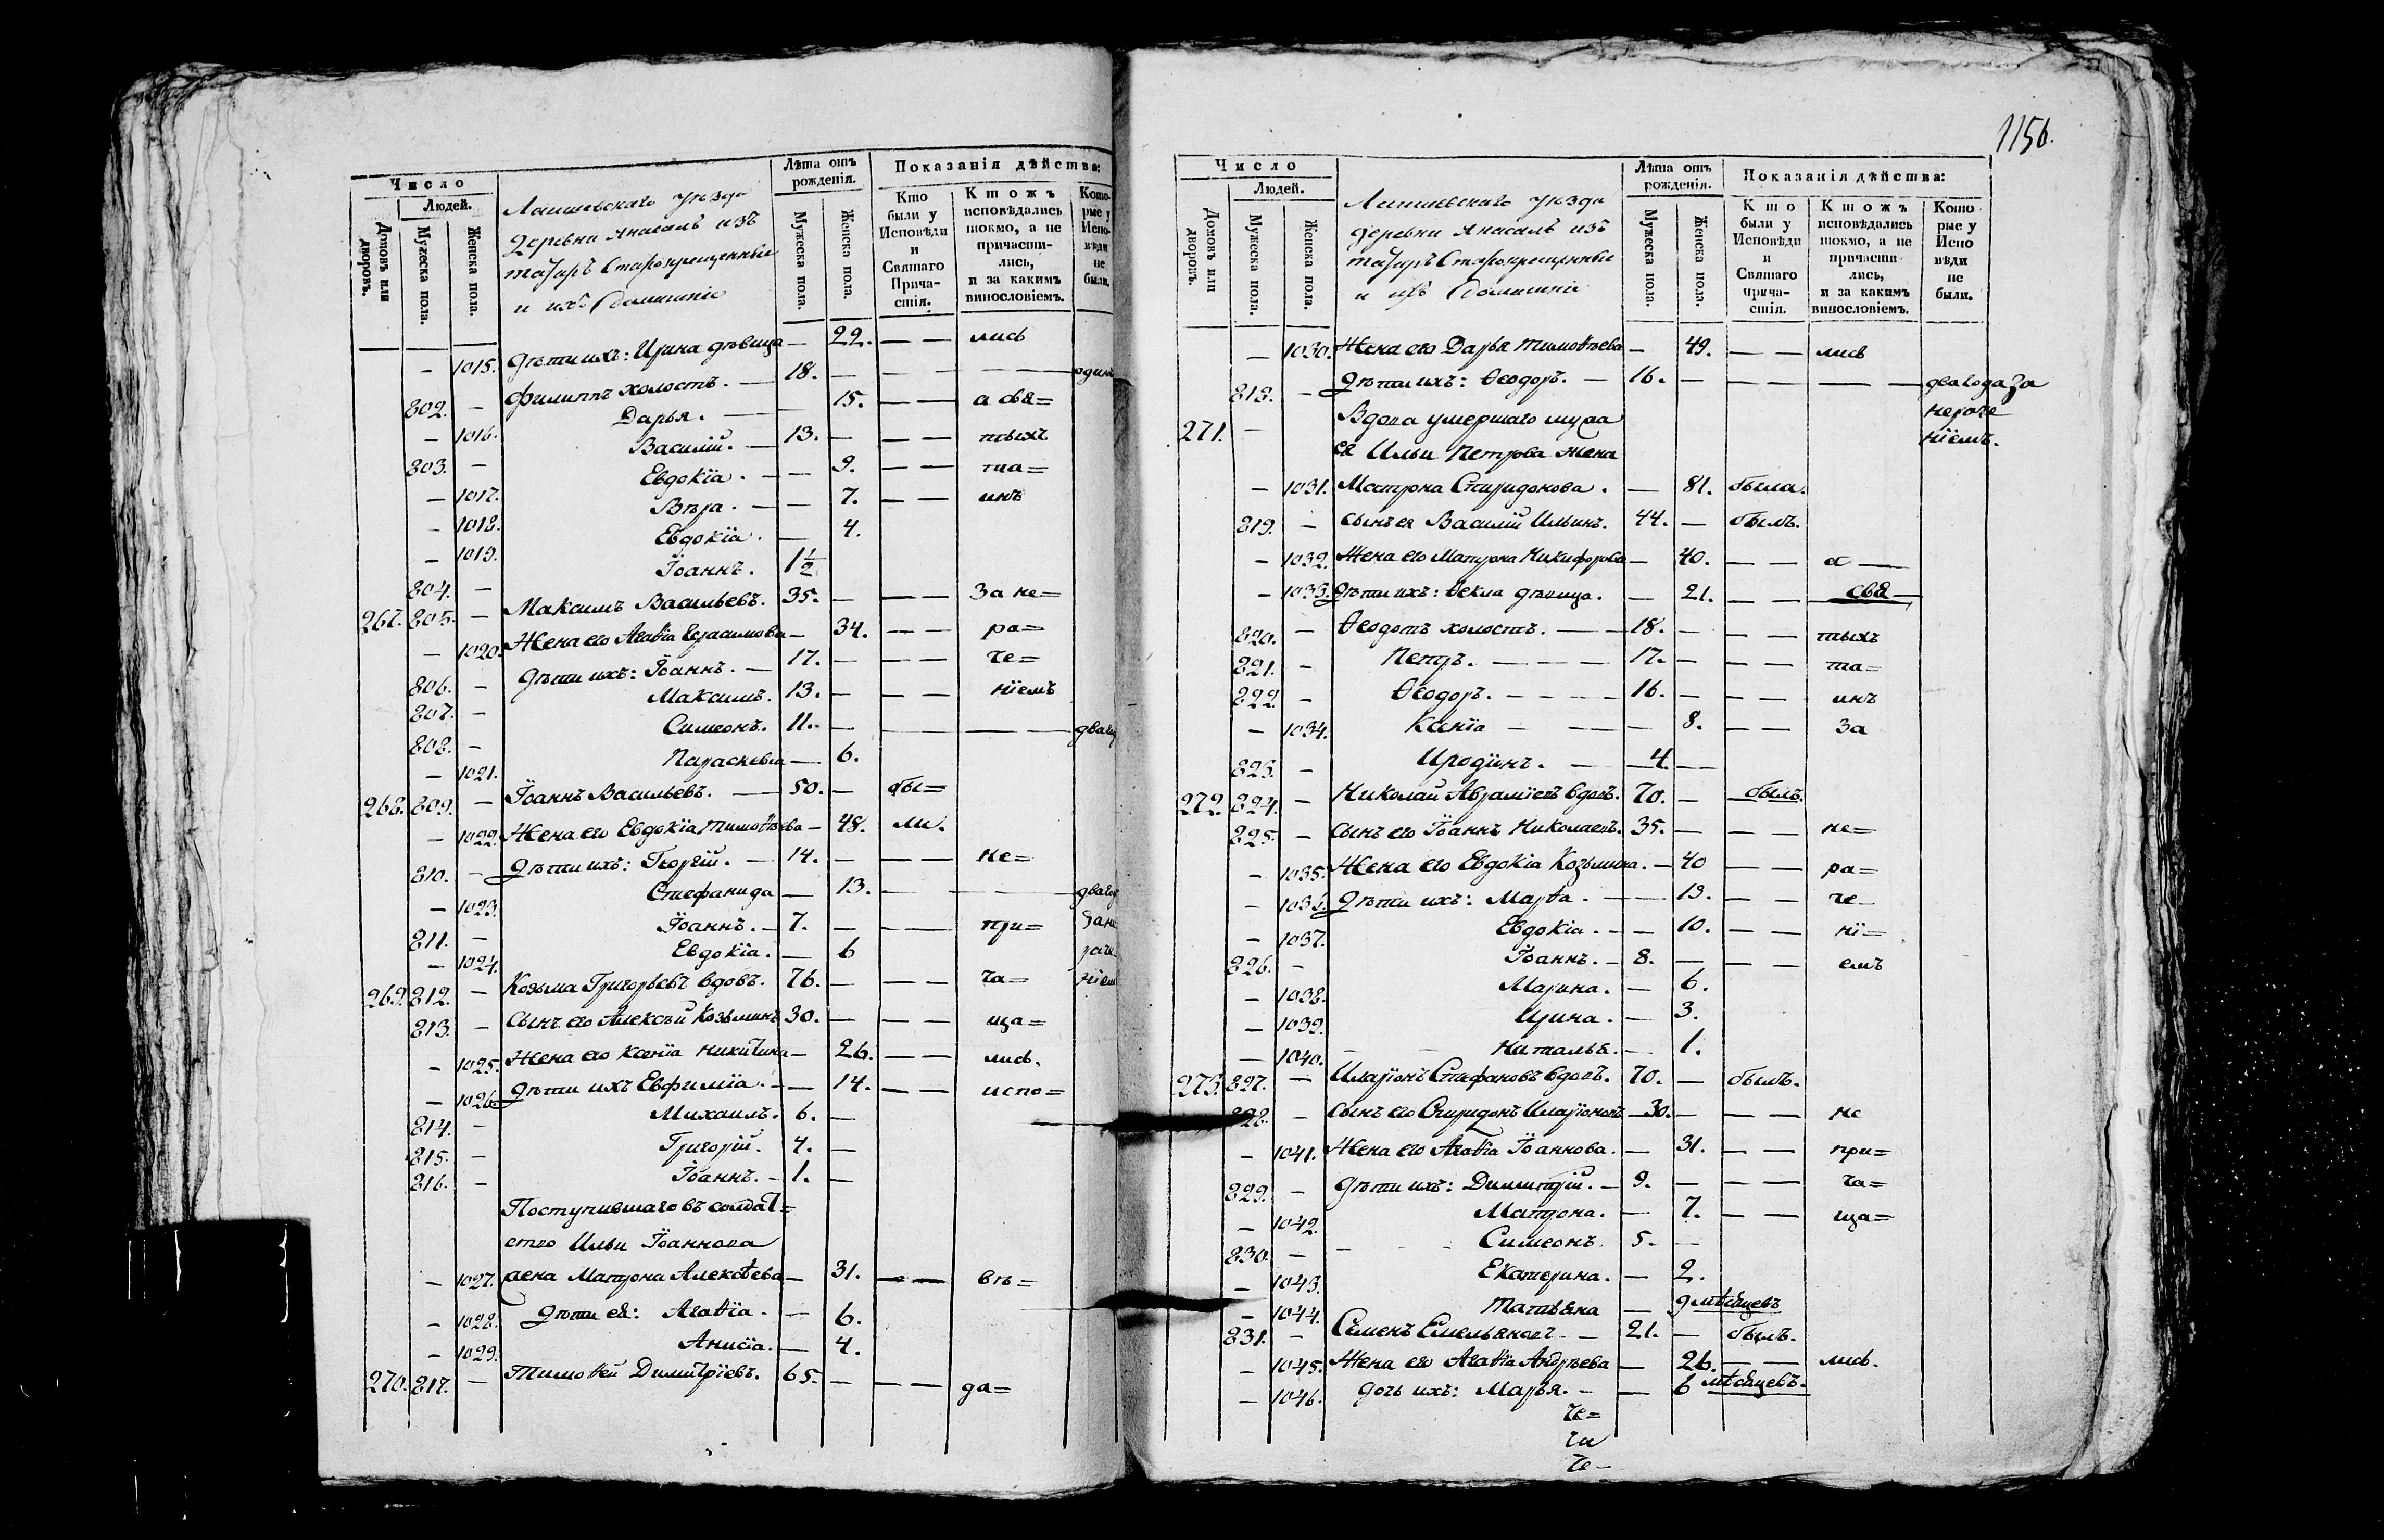 Число
Людей.
Домовъ или дворовъ.
Мужеска пола.
Женска пола.
Лаишевскаго уѣзда
деревни Янасалъ изъ
татаръ Старокрещенные
и ихъ домашніе
Лѣта отъ рожденія.
Мужеска пола.
Женска пола.
Показанія дѣйства:
Кто были у Исповѣди и Святаго Причастія.
Ктожъ исповѣдались токмо, а не причастились, и за какимъ винословіемъ.
Которые у Исповѣди не были.
— 1015. Дѣти ихъ: Ирина дѣвица — 22. — — лись
802. — Филиппъ холостъ. — 18. — — — — одинъ
— 1016. Дарья. — 15. — — а свя=
803. — Василій. — 13. — — — тыхъ
— 1017. Евдокіа. — — 9. — — та=
— 1018. Вѣра. — — 7. — — инъ
— 1019. Евдокіа. — 4.
804. — Іоаннъ. 1½
267. 805. — Максимъ Васильевъ. 35. — — — За не=
— 1020. Жена его Агаѳіа Герасимова — 34. — — ра=
806. — Дѣти ихъ: Іоаннъ. — 17. — — — че=
807. — Максимъ. 13. — — — ніемъ
808. — Симеонъ. 11. — — — —
— 1021. Параскевіа — 6.
268. 809. — Іоаннъ Васильевъ. — 50. — бы=
— 1022. Жена его Евдокіа Тимоѳѣева — 48. ли.
810. — Дѣти ихъ: Георгій. — 14. — — — не=
— 1023. Стефанида — 13. — — —
811. — Іоаннъ. — 7. — — — при=
— 1024. Евдокіа. — 6
269. 812. — Козьма Григорьевъ вдовъ. 76. — — — ча=
813. — Сынъ его Алексѣй Козьминъ 30. — — — ща=
— 1025. Жена его Ксеніа Никитина — 26. — — лись.
— 1026. Дѣти ихъ Евфиміа. — — 14. — — испо=
814. — Михаилъ. 6. —
815. — Григорій. 4. —
816. — Іоаннъ. — 1. —
Поступившаго въ солдат=
ство Ильи Іоаннова
— 1027. жена Матрона Алексѣева — 31. — — вѣ=
— 1028. Дѣти ея: Агаѳіа. — 6.
— 1029. Анисіа. — 4.
270. 817. — Тимоѳей Димитріевъ. 65. — — — да=
1156.
Число
Людей.
Домовъ или дворовъ.
Мужеска пола.
Женска пола.
Лаишевскаго уѣзда
деревни Янасалъ изъ
татаръ Старокрещенные
и ихъ домашніе
Лѣта отъ рожденія.
Мужеска пола.
Женска пола.
Показанія дѣйства:
Кто были у Исповѣди и Святаго причастія.
Ктожъ исповѣдались токмо, а не причастились, и за какимъ винословіемъ.
Которые у Исповѣди не были.
— 1030. Жена его Дарья Тимоѳѣева — 49. — — лись
818. — Дѣти ихъ: Ѳеодоръ. — 16. — — — — два года за
271. — Вдова умершаго мужа нераче
ея Ильи Петрова жена ніемъ.
— 1031. Матрона Спиридонова. — 81. была.
819. — Сынъ ея Василій Ильинъ. 44. — былъ.
— 1032. Жена его Матрона Никифорова — 40. — — а —
— 1033. Дѣти ихъ: Ѳекла дѣвица. — 21. — — свя—
820. — Ѳеодотъ холостъ. — 18. — — — тыхъ
821. — Петръ. — — — 17. — — — та=
822. — Ѳеодоръ. — — — 16. — — — инъ
— 1034. Ксеніа — — — 8. — — за
823. — Иродіонъ. — 4. —
272. 824. — Николай Аврамiевъ вдовъ. 70. — былъ.
825. — Сынъ его Іоаннъ Николаевъ. 35. — — — не=
— 1035. Жена его Евдокіа Козьмина. — 40 — — ра=
— 1036. Дѣти ихъ: Марѳа. — — 13. — — че—
— 1037. Евдокіа. — — 10. — — ні=
826. — Іоаннъ. — 8. — — — емъ
— 1038. Марина. — 6.
— 1039. Ирина. — 3.
— 1040. Наталья. — 1.
273. 827. — Иларіонъ Стефановъ вдовъ. 70. — былъ.
828. — Сынъ его Спиридонъ Иларіоновъ — 30. — — — не
— 1041. Жена его Агаѳіа Іоаннова. — 31. — — при=
829. — Дѣти ихъ: Димитрій. — 9. — — — ча=
— 1042. Матрона. — 7. — — ща=
830. — Симеонъ. 5. —
— 1043. Екатерина. — 2.
— 1044. Татьяна — 9 мѣсяцевъ
831. — Семенъ Емельяновъ. — 21. — былъ.
— 1045. Жена его Агаѳіа Андреева — 26. — — лись.
— 1046. дочь ихъ: Марья. — — 6 мѣсяцевъ.